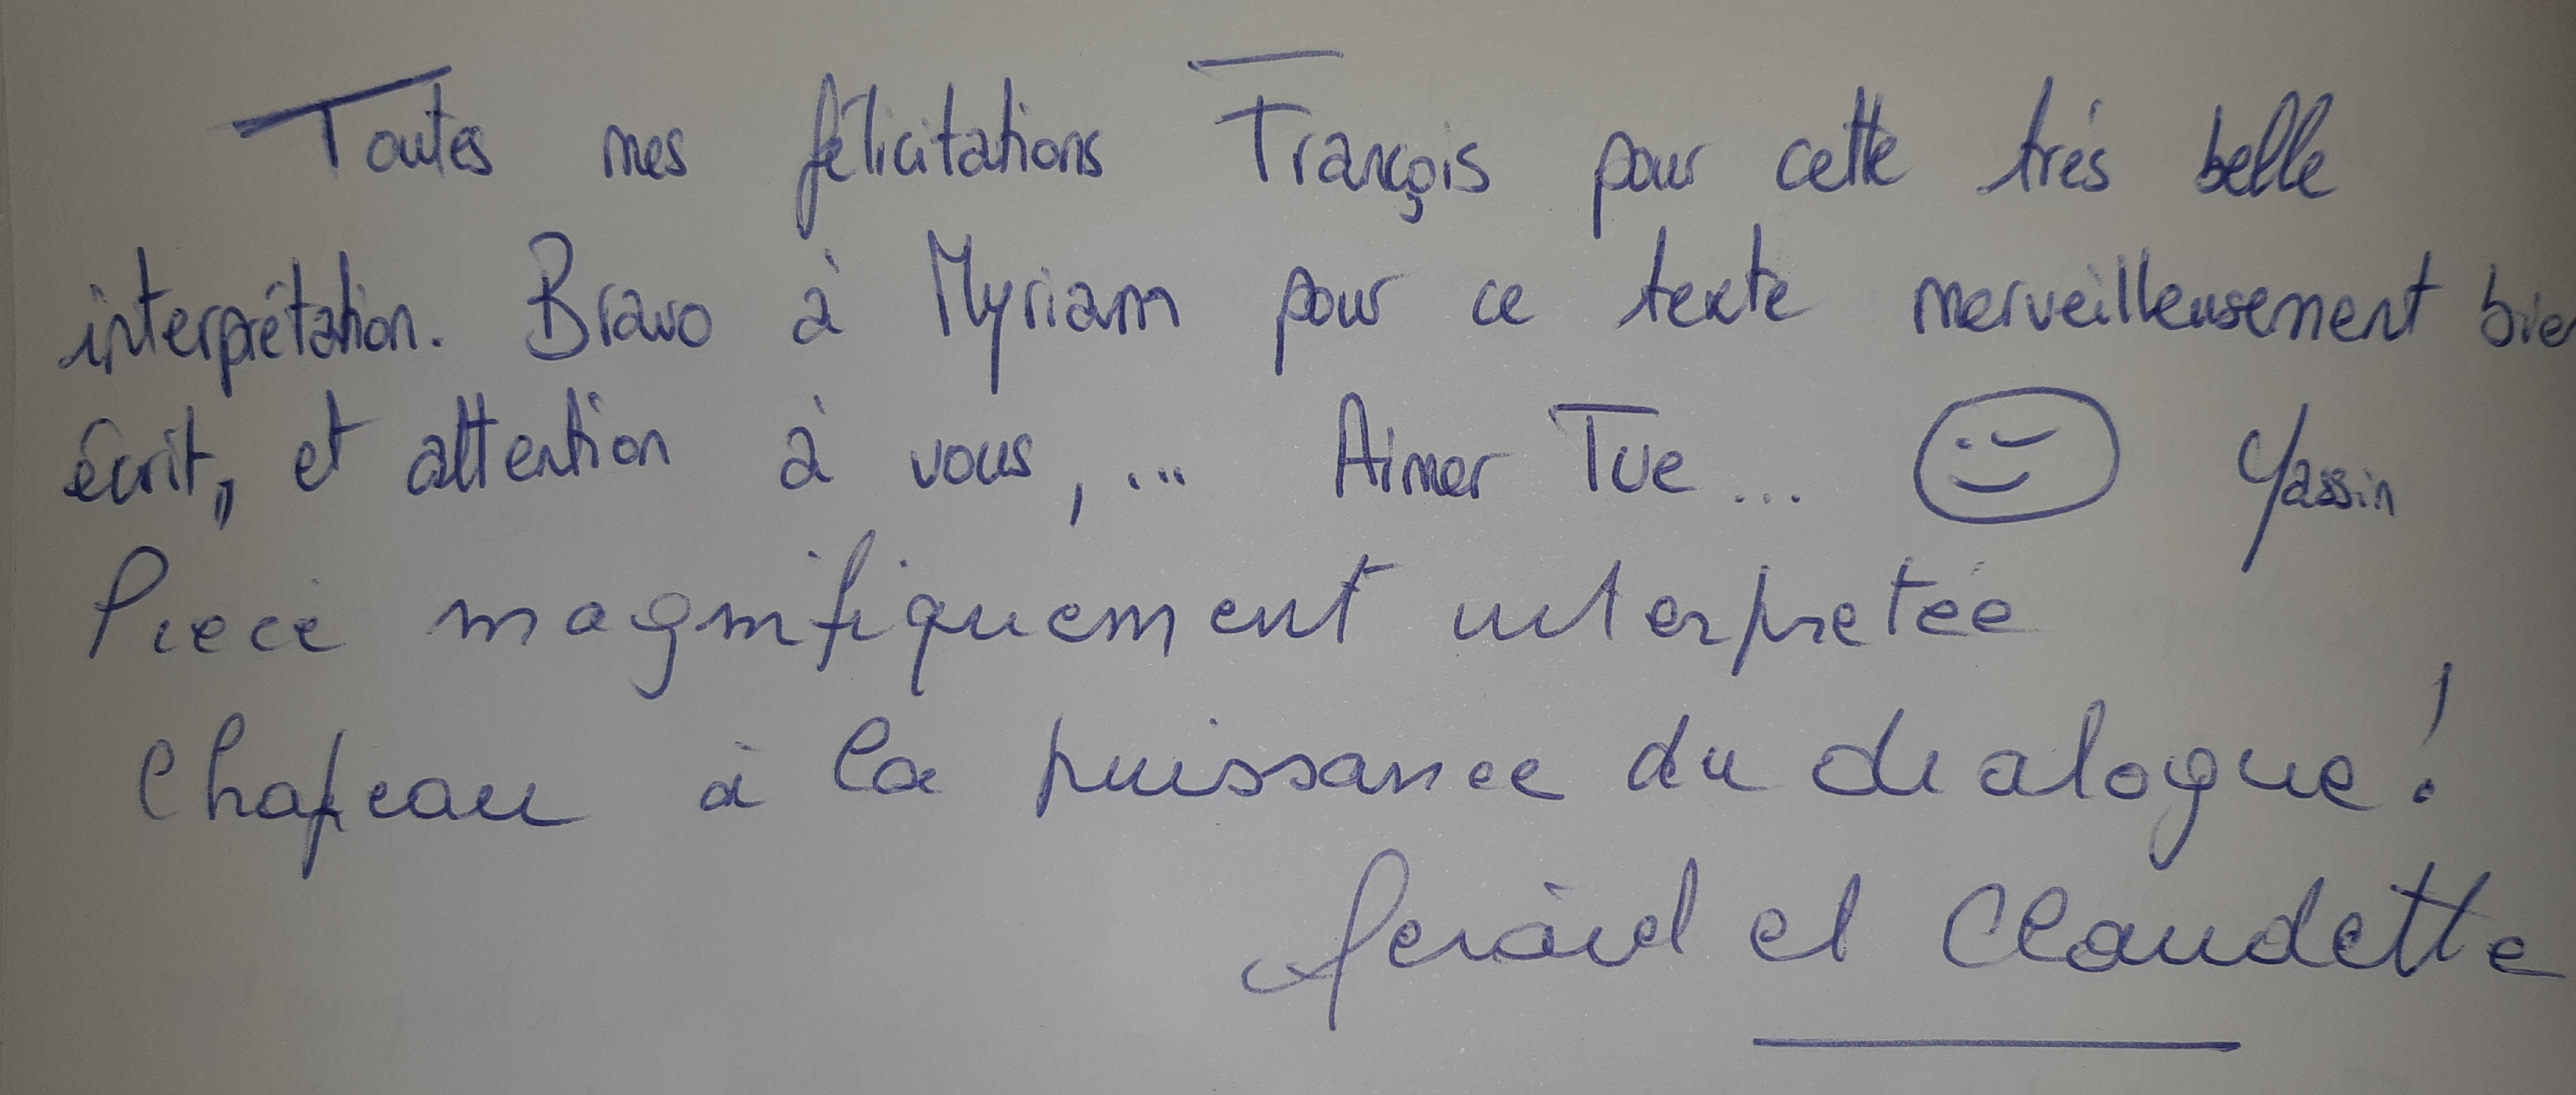 Toutes mes félicitations François pour cette trés belle
interprétation. Bravo à Myriam pour ce texte merveilleusement bie
écrit,, et attention à vous, ... Aimer Tue ... Yassin
Piece magnifiquement interpretée
Chapeau à la puissance du dialogue !
Gerard et Claudette